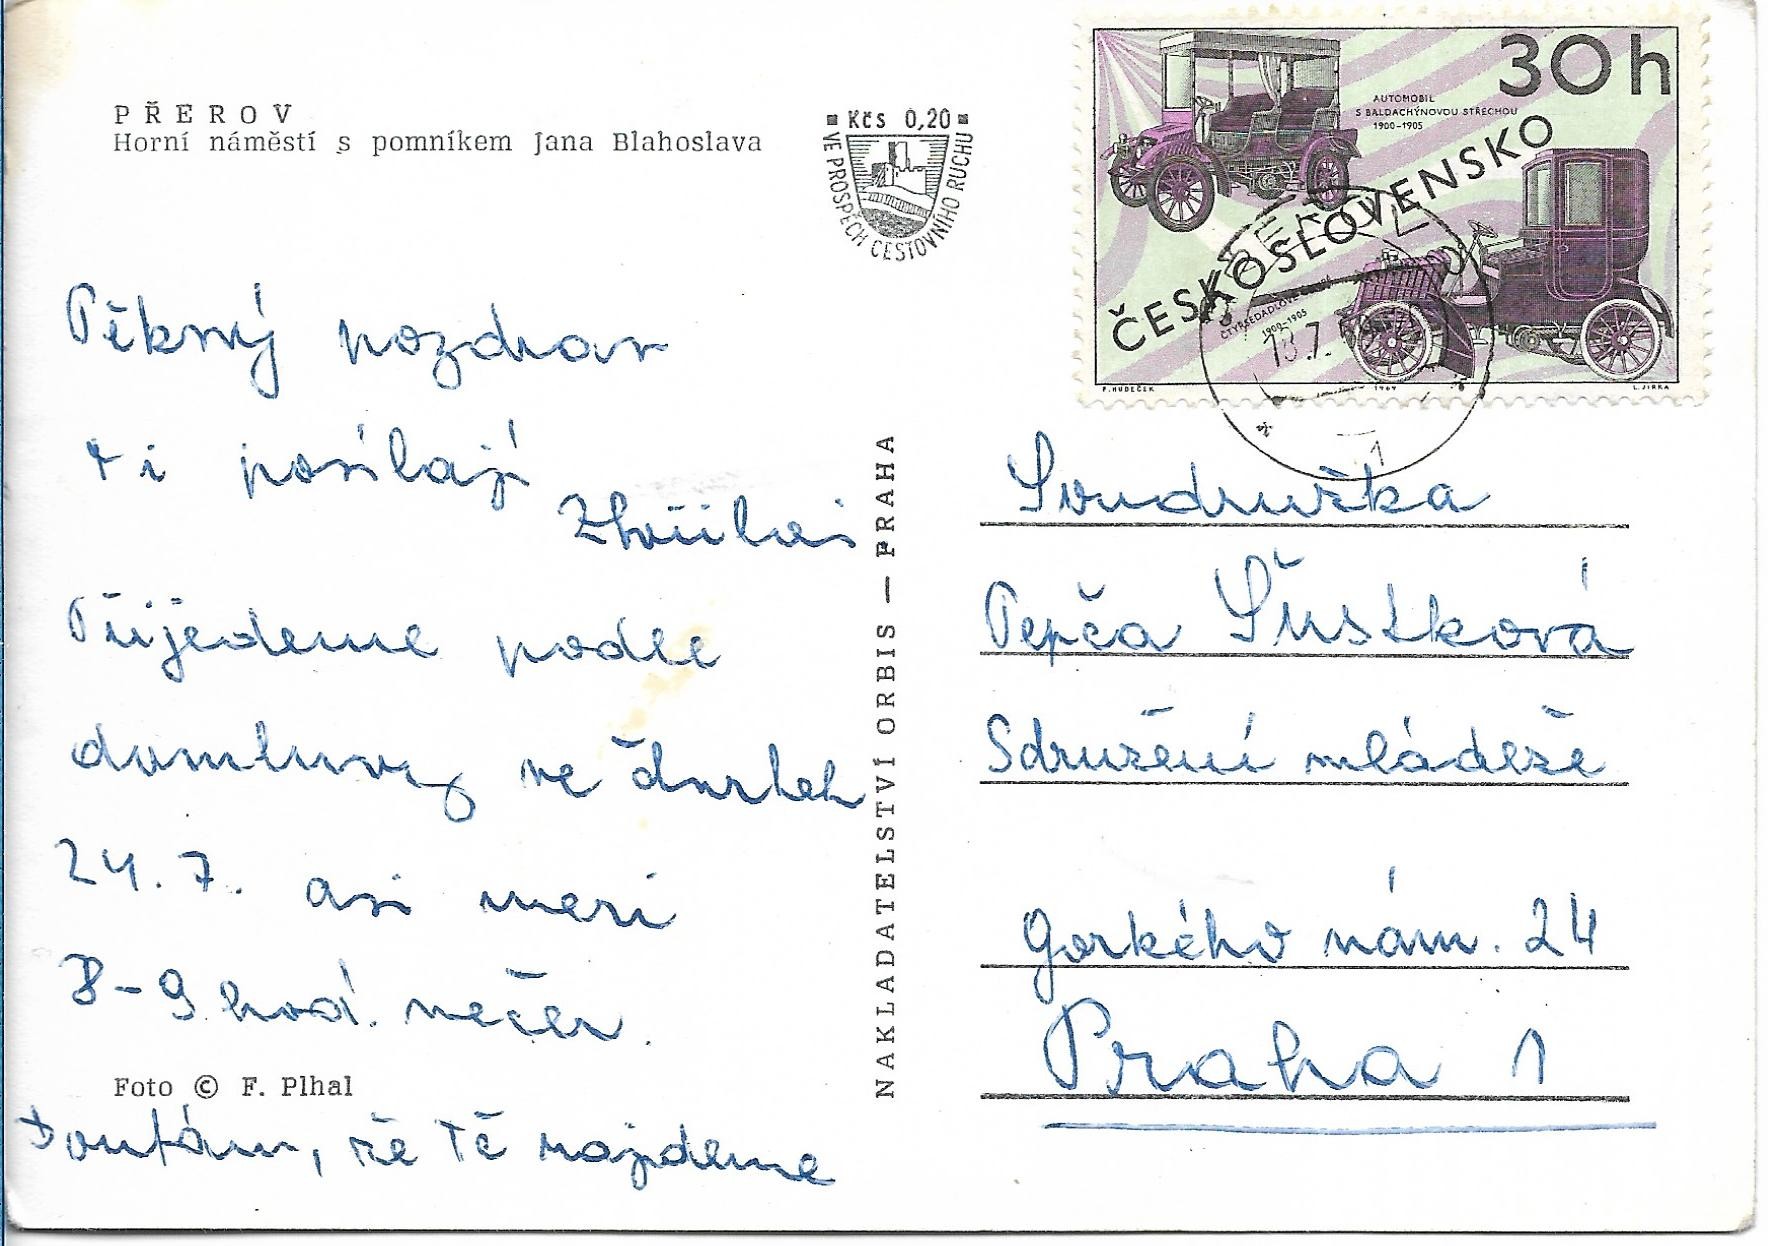 PŘEROV
Horní náměstí s pomníkem Jana Blahoslava
Kčs 0,20
VE PROSPĚCH CESTOVNÍHO RUCHU
30h
AUTOMOBIL
S BALDACHÝNOVOU STŘECHOU
1900-1905
ČESKOSLOVENSKO
1900-1905
F. HUDEČEK
1969
L. JIRKA
1
Pěkný pozdrav
ti posílají
Přijedeme podle
domluvy ve čtvrtek
24.7. asi mezi
8-9 hod. večer.
Foto © F. Plhal
Doufám, že Tě najdeme
NAKLADATELSTVÍ ORBIS — PRAHA
Soudružka
Pepča Šůstková
Sdružení mládeže
Gorkého nám. 24
Praha 1